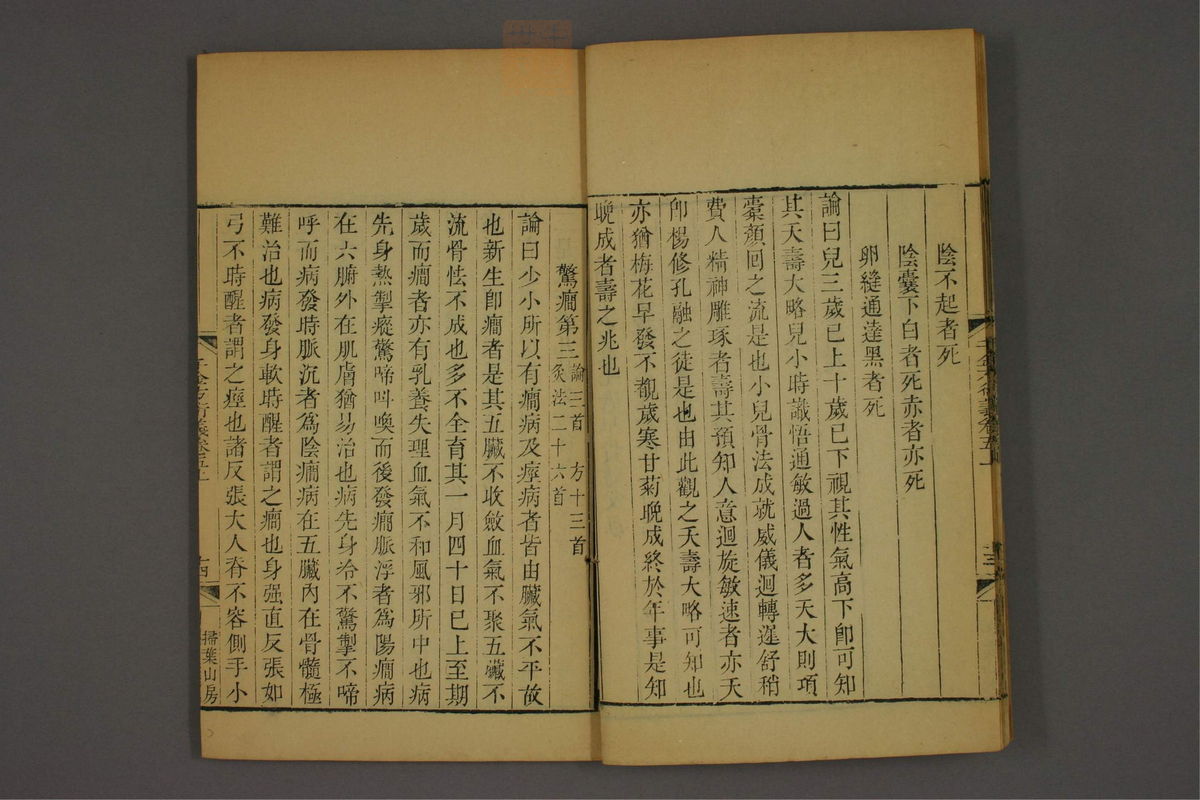 陰不起者死
陰囊下白者死赤者亦死
卵縫通達黑者死
論曰兒三歲已上十歲已下視其性氣高下卽可知
其夭壽大略兒小時識悟通敏過人者多夭大則項
橐顏回之流是也小兒骨法成就威儀迴轉遲舒稍
費人精神雕琢者壽其預知人意迴旋敏速者亦夭
卽楊修孔融之徒是也由此觀之夭壽大略可知也
亦猶梅花早發不覩歲寒甘菊晚成終於年事是知
晚成者壽之兆也
驚癎第三 論三首 方十三首
灸法二十六首
論曰少小所以有癎病及痙病者皆由臟氣不平故
也新生卽癎者是其五臟不收斂血氣不聚五臟不
流骨怯不成也多不全育其一月四十日已上至期
歲而癎者亦有乳養失理血氣不和風邪所中也病
先身熱掣瘲驚啼叫喚而後發癎脈浮者爲陽癎病
在六腑外在肌膚猶易治也病先身冷不驚掣不啼
呼而病發時脈沉者爲陰癎病在五臟內在骨髓極
難治也病發身軟時醒者謂之癎也身强直反張如
弓不時醒者謂之痙也諸反張大人脊不容側手小
十四
掃葉山房